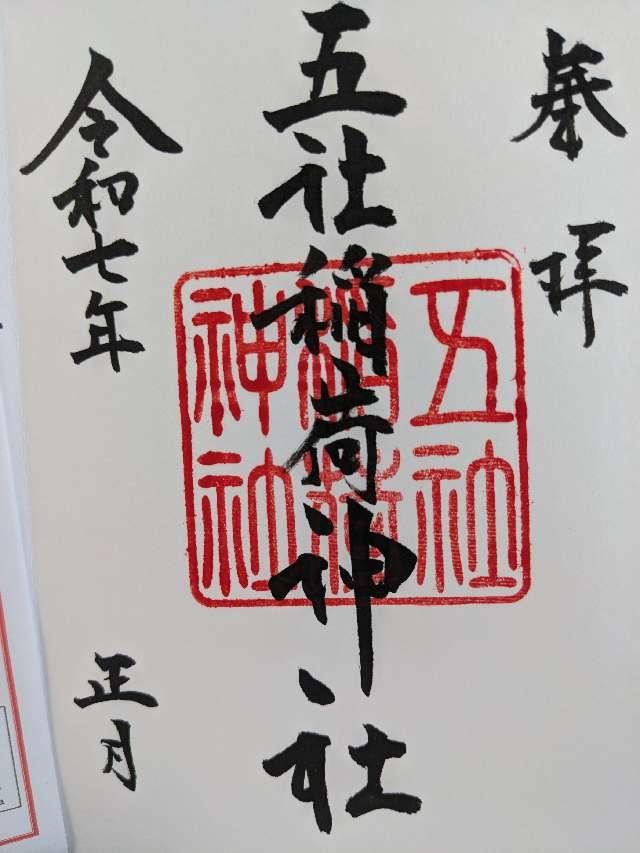 奉拝
五社稲荷神社
五社
稲荷
神社
令和七年
正月